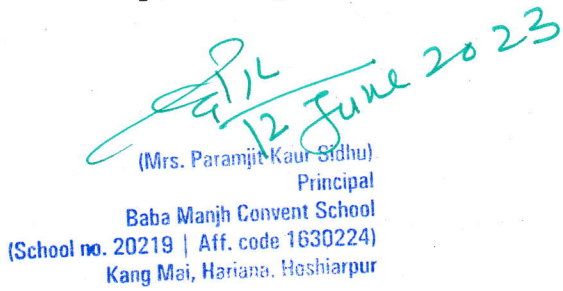 12 June 2023
(Mrs. Paramjit Kaur Sidhu)
Principal
Baba Manjh Convent School
(School no. 20219 | Aff. code 1630224)
Kang Mai, Hariana. Hoshiarpur